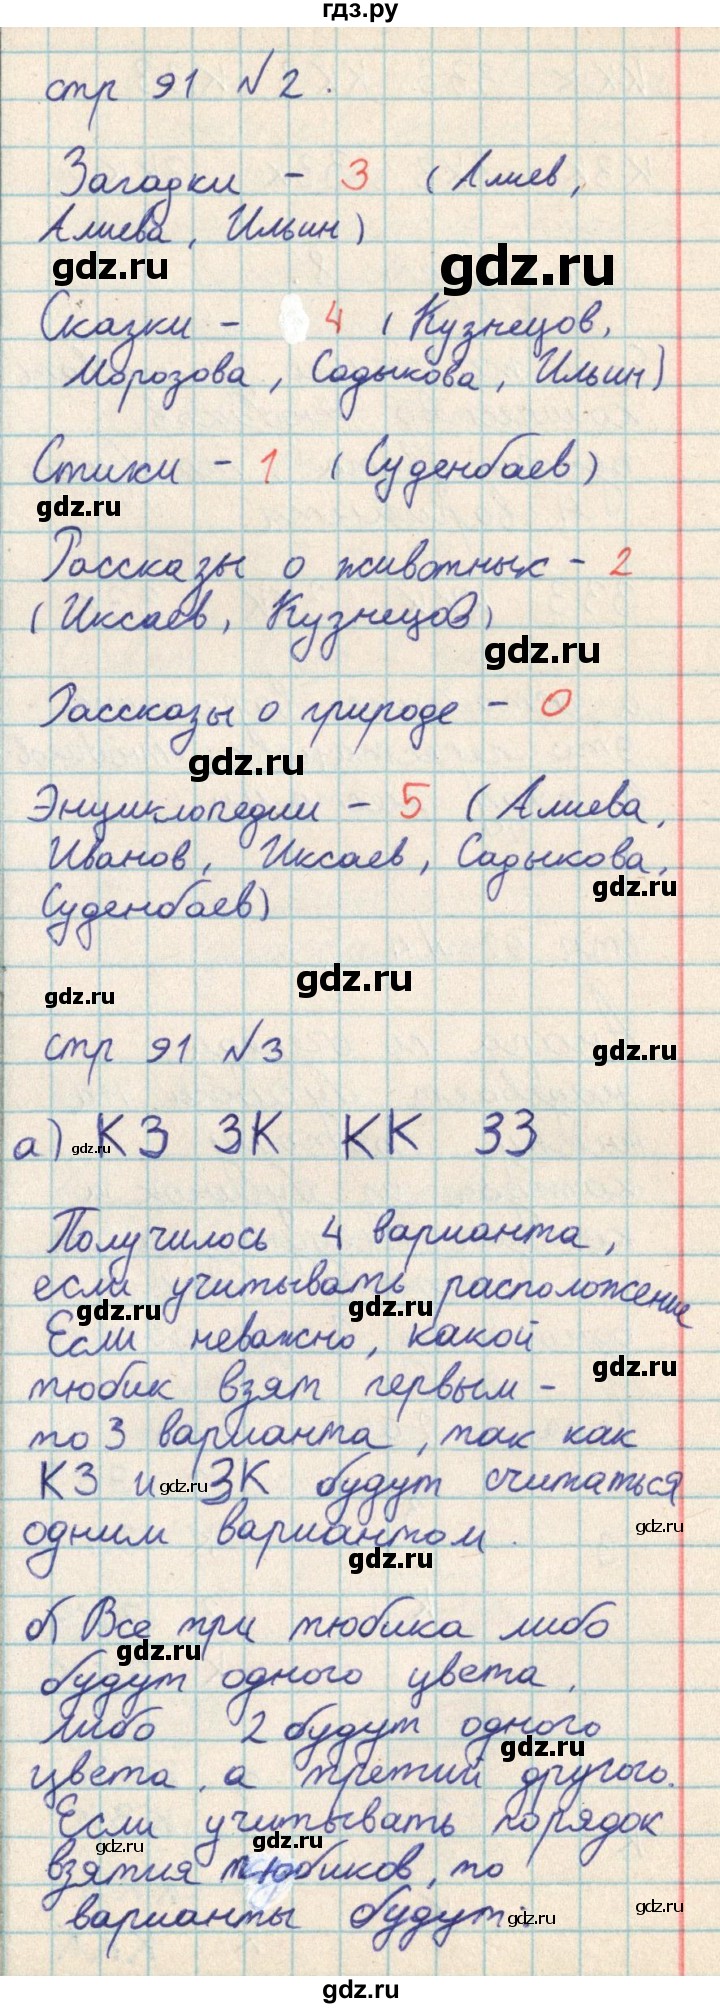 гдз.ру
стр 91 №2.
Загадки - 3 (Алиев,
Алиева, Ильин)
gdz.ru
gdz.ru
Сказки - 4 (Кузнецов,
Морозова, Садыкова, Ильин)
Стихи - 1 (Суденбаев)
gdz.ru
Рассказы о животных - 2
(Иксаев, Кузнецов)
gdz.ru
Рассказы о природе - 0
gdz.ru
Энциклопедии - 5 (Алиева,
Иванов, Иксаев, Садыкова,
gdz.ru
Суденбаев)
gdz.ru
gdz.ru
стр 91 №3
gdz.ru
а) КЗ ЗК КК ЗЗ
gdz.ru
Получилось 4 варианта,
если учитывать расположение
gdz.ru
gdz.ru
Если неважно, какой
gdz.ru
тюбик взят первым -
то 3 варианта, так как
КЗ и ЗК будут считаться
gdz.ru
gdz.ru
одним вариантом.
gdz.ru
б) Все три тюбика либо
gdz.ru
будут одного цвета,
либо 2 будут одного
gdz.ru
цвета, а третий другого.
Если учитывать порядок
gdz.ru
gdz.ru
взятия тюбиков, то
варианты будут:
gdz.ru
gdz.ru
gdz.ru